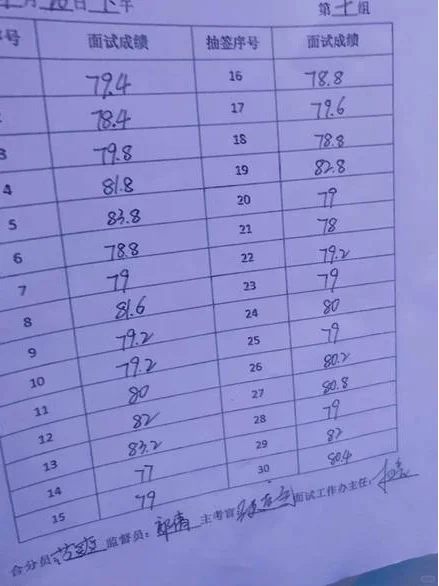 月 10 日 下 午 第 十 组
序号 面试成绩 抽签序号 面试成绩
79.4 16 78.8
78.4 17 79.6
3 79.8 18 78.8
4 81.8 19 82.8
5 83.8 20 79
6 78.8 21 78
7 79 22 79.2
8 81.6 23 79
9 79.2 24 80
10 79.2 25 79
11 80 26 80.2
12 82 27 80.8
13 83.2 28 79
14 77 29 82
15 79 30 80.4
合分员: 监督员: 主考官: 面试工作办主任: